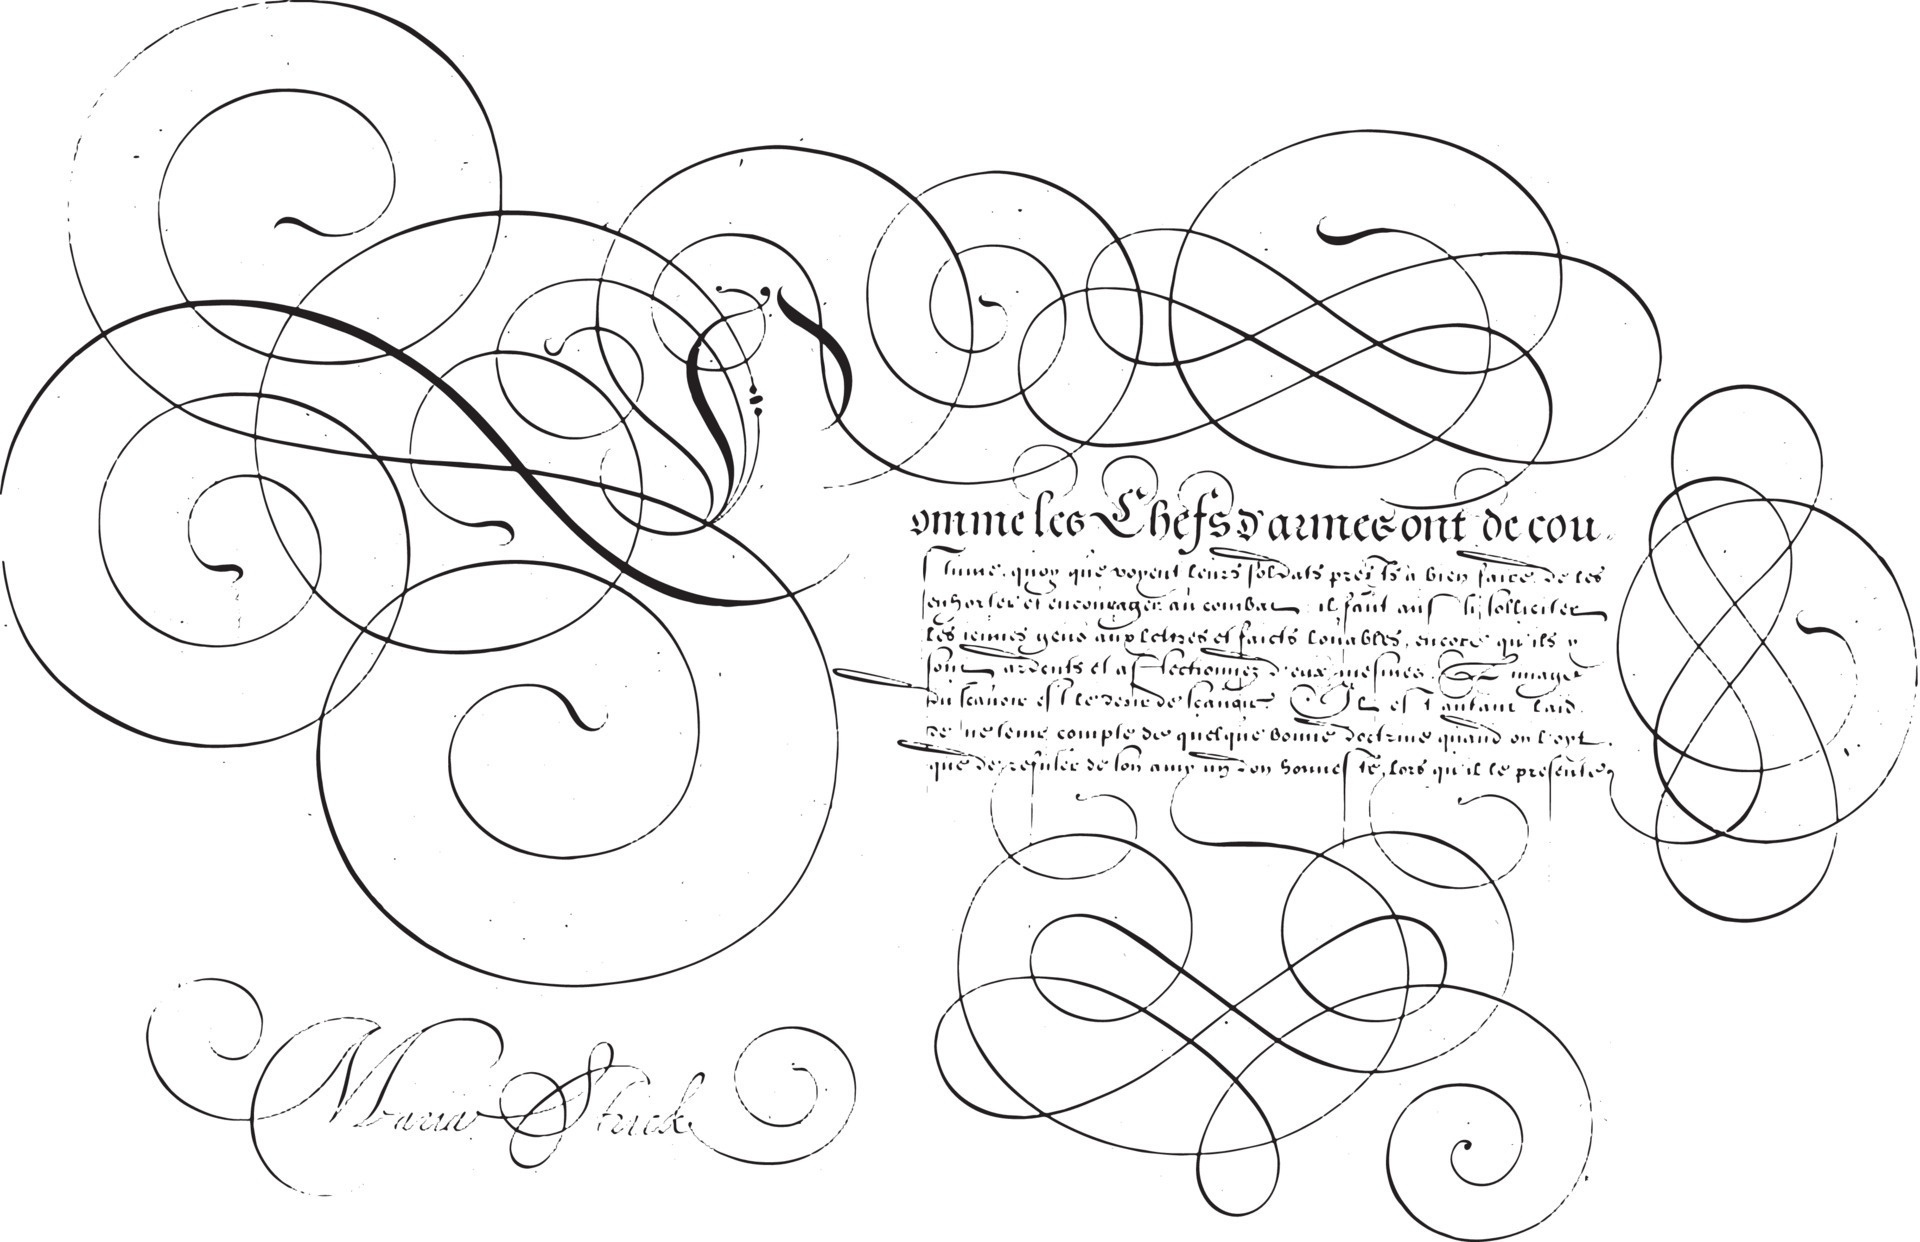 omme les Chefs d'armes ont de cou
stume, quoy que voyent leurs soldats prests a bien faire, de les
enhorter et encourager au combat, il faut aussi solliciter
les ieunes gens aux lettres et faicts louables, encore qu'ils y
sont ardents et affectionnez d'eux mesmes. Et image
du scavoir est le desir de Il est autant laid
de ne tenir compte de quelque bonne doctrine quand on l'oyt,
que de refuser de son amy un don honneste, lors qu'il le presente
Maria Strick